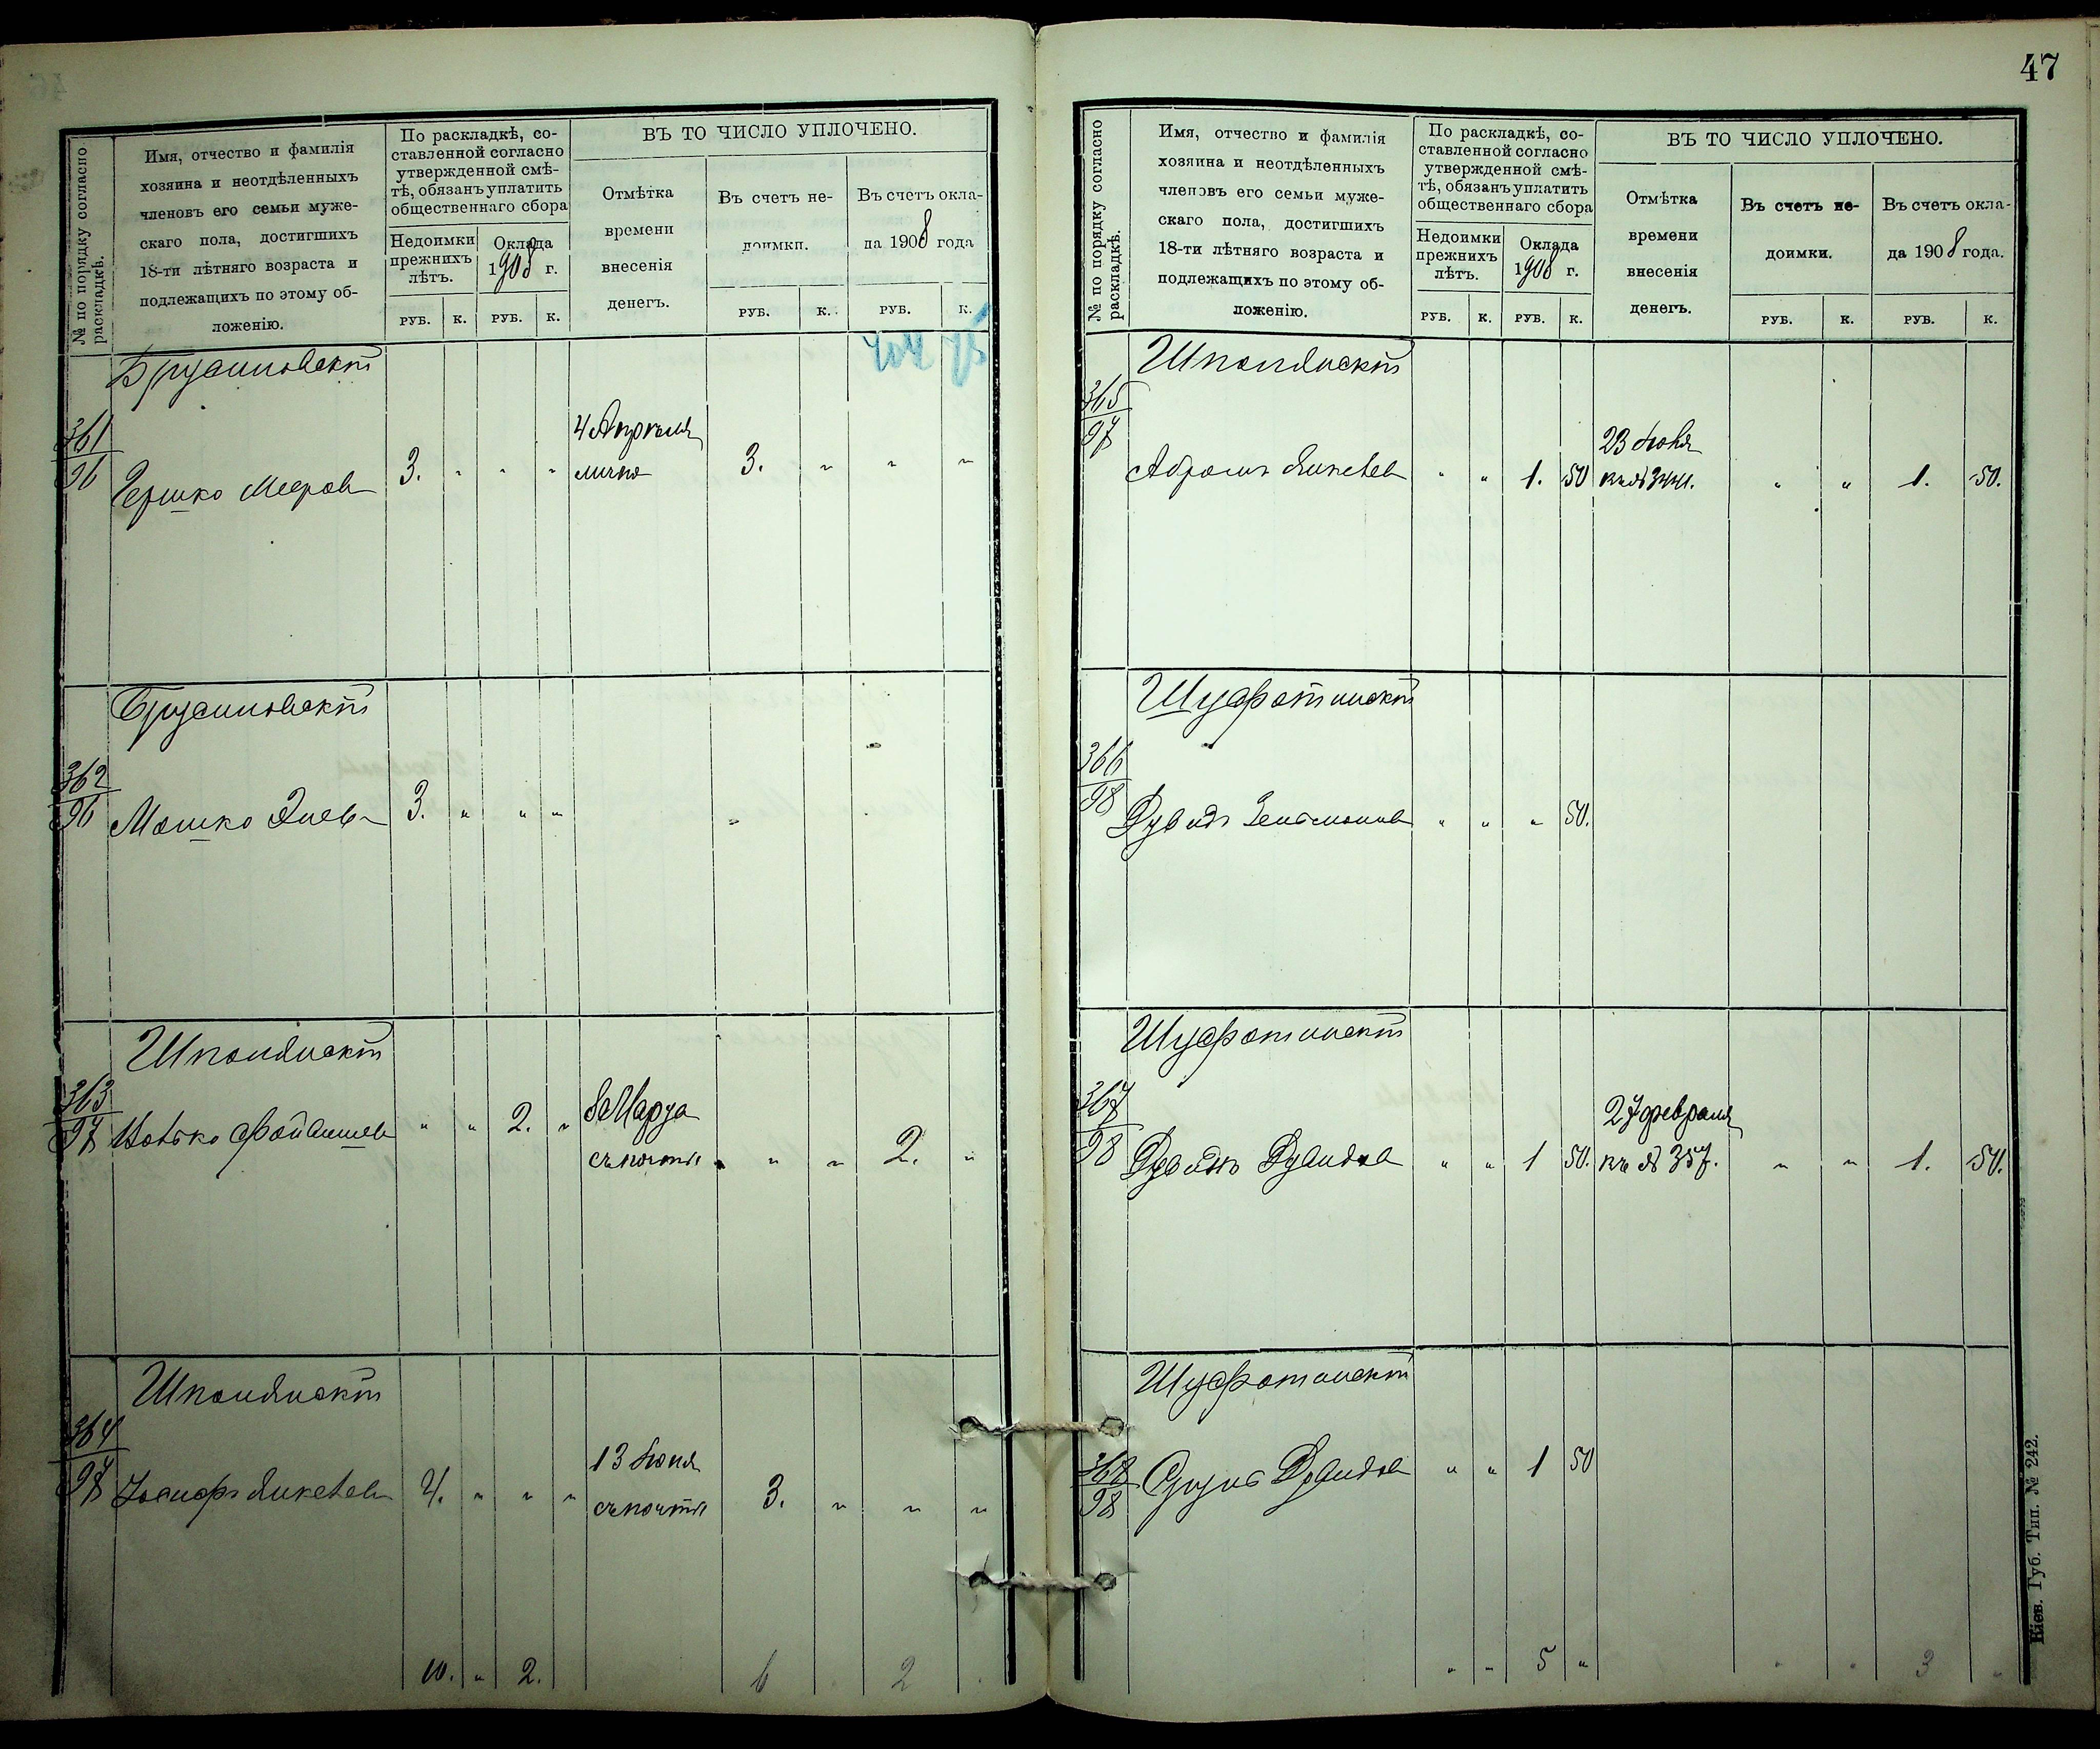 № по порядку согласно раскладкѣ.
Имя, отчество и фамилія
хозяина и неотдѣленныхъ
членовъ его семьи муже-
скаго пола, достигшихъ
18-ти лѣтняго возраста и
подлежащихъ по этому об-
ложенію.
По раскладкѣ, со-
ставленной согласно
утвержденной смѣ-
тѣ, обязанъ уплатить
общественнаго сбора
Недоимки
прежнихъ
лѣтъ.
Оклада
1908 г.
РУБ. К. РУБ. К.
ВЪ ТО ЧИСЛО УПЛОЧЕНО.
Отмѣтка
времени
внесенія
денегъ.
Въ счетъ не-
доимки.
Въ счетъ окла-
да 1908 года
РУБ. К. РУБ. К.
Брусиловскій
361/96 Гершко Мееровъ 3. " " " 4 Апрѣля лично 3. " " "
Брусиловскій
362/96 Мошко 3. " " "
Шполянскій
363/97 " " 2. " 8 Марта
съ почты " " 2. "
Шполянскій
364/97 Іосифъ Янкелев 4. " " " 13 Іюня
съ почты 3. " " "
10. " 2. 6 2
47
№ по порядку согласно раскладкѣ.
Имя, отчество и фамилія
хозяина и неотдѣленныхъ
членовъ его семьи муже-
скаго пола, достигшихъ
18-ти лѣтняго возраста и
подлежащихъ по этому об-
ложенію.
По раскладкѣ, со-
ставленной согласно
утвержденной смѣ-
тѣ, обязанъ уплатить
общественнаго сбора
Недоимки
прежнихъ
лѣтъ.
Оклада
1908 г.
РУБ. К. РУБ. К.
ВЪ ТО ЧИСЛО УПЛОЧЕНО.
Отмѣтка
времени
внесенія
денегъ.
Въ счетъ не-
доимки.
Въ счетъ окла-
да 1908 года.
РУБ. К. РУБ. К.
Шполянскій
365/97 Абрамъ Янкелев " " 1. 50 23 Іюня
" " 1. 50.
Шуфотинскій
366/98 Дувидъ Зельмановъ " " " 50.
Шуфотинскій
367/98 Дувидъ " " 1 50. 27 февраля
къ № 357. " " 1. 50.
Шуфотинскій
368/98 " " 1 50
" " 5 " " " 3 "
Кіев. Губ. Тип. № 242.